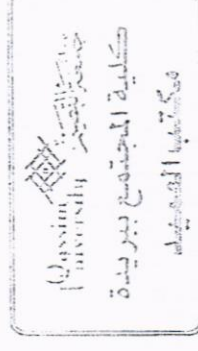 جامعة القصيم
Qassim University
كلية المجتمع ببريدة
مكتب العميد